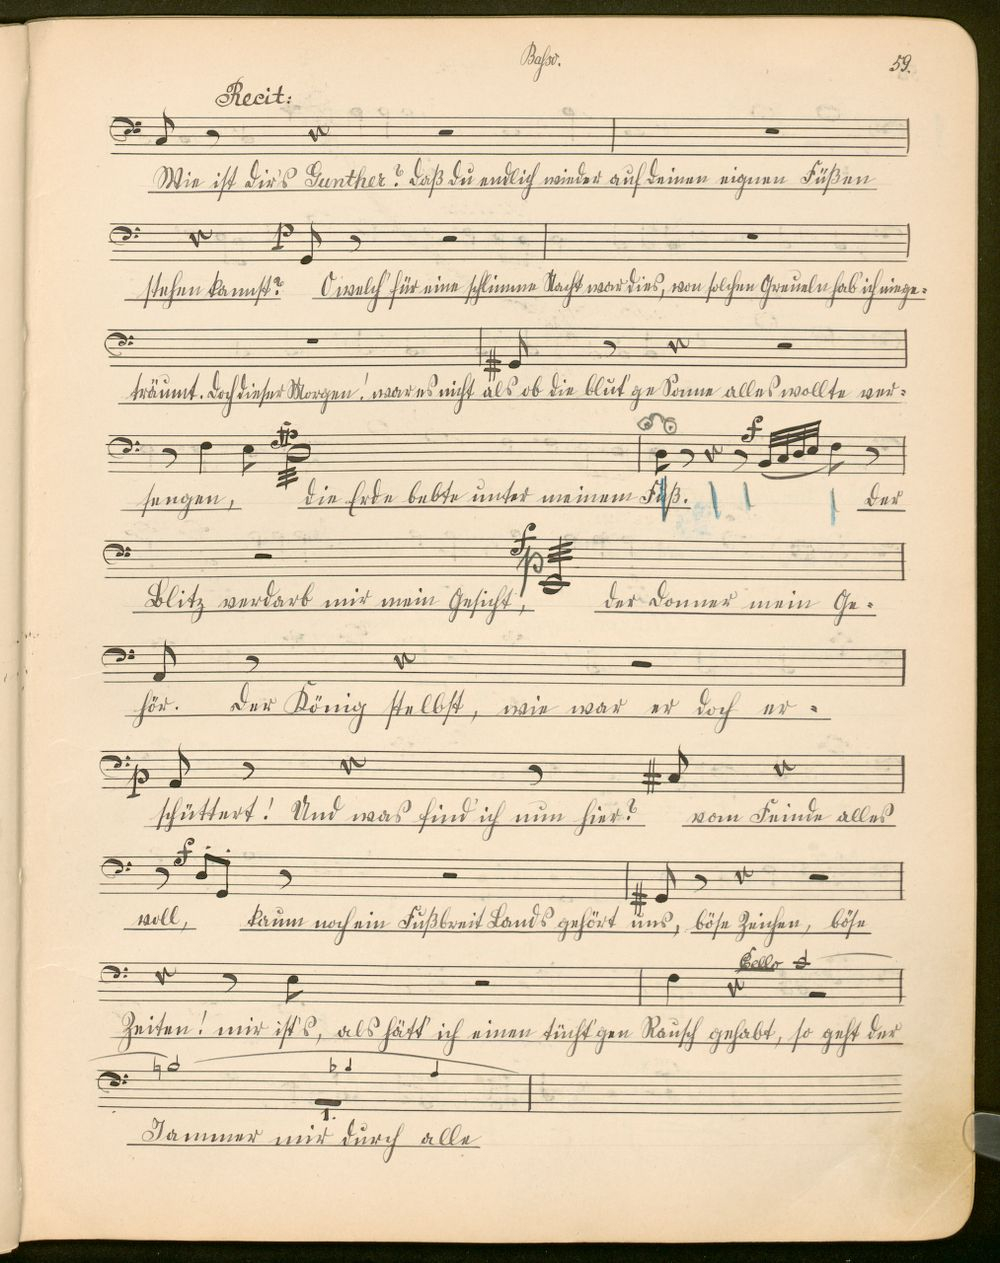 Basso.
59.
Recit:
Wie ist dir's Gunther? daß du endlich wieder auf deinen eignen Füßen
p
stehen kannst? O welch' für eine schlimme Nacht war dies, von solchen Greueln hab' ich niege=
träumt. doch dieser Morgen! war es nicht als ob die blut'ge Sonne alles wollte ver=
fp
f
sengen, die Erde bebte unter meinem Fuß. der
f
p
Blitz verdarb mir mein Gesicht, der Donner mein Ge=
hör. der König stelbst, wie war er doch er=
p
schüttert! Und was find' ich nun hier? vom Feinde alles
f
voll, kaum noch ein Fußbreit Lands gehört uns, böse Zeichen, böse
Cello
Zeiten! mir ist's, als hätt' ich einen tücht'gen Rausch gehabt, so geht der
1.
Jammer mir durch alle